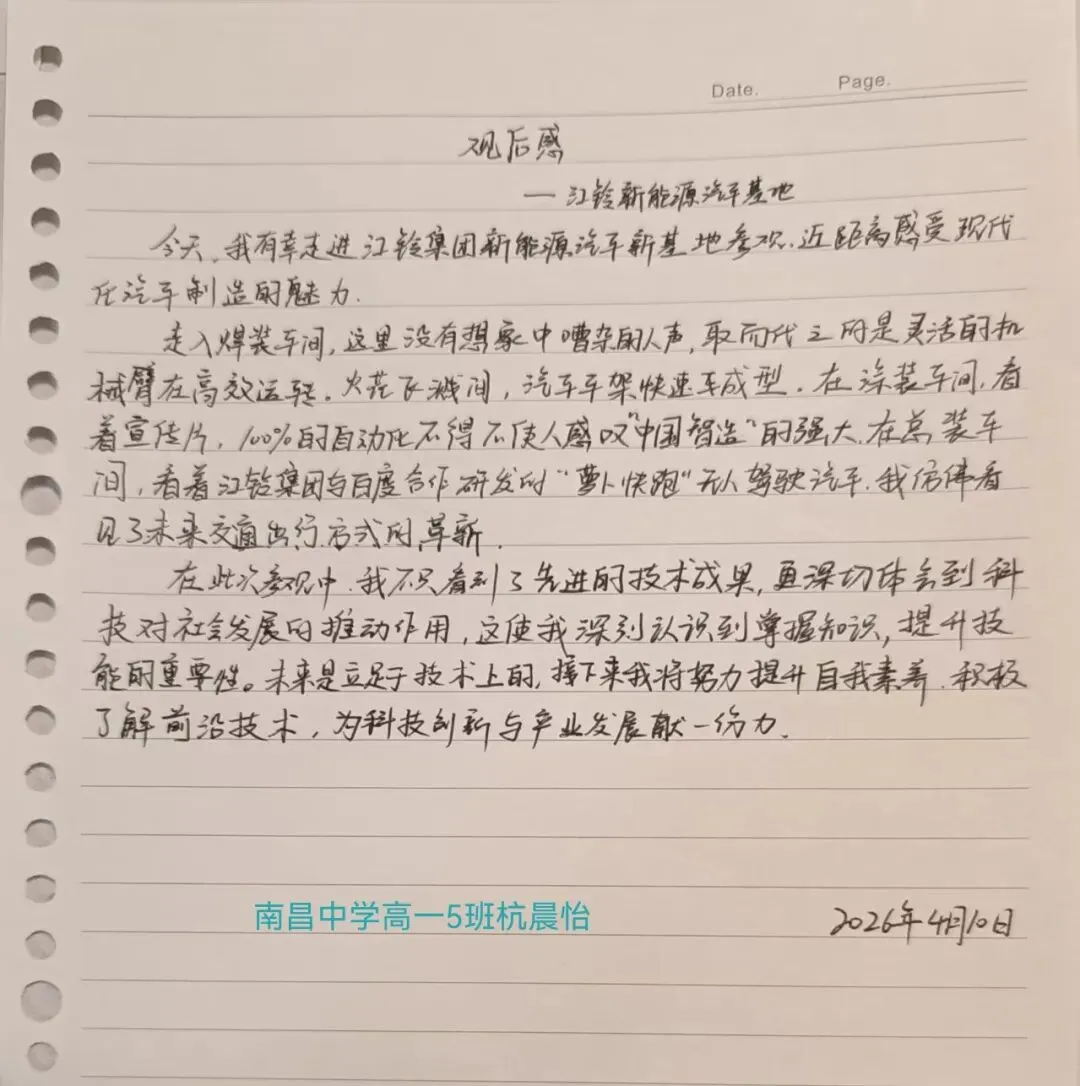 Date.
Page.
观后感
— 江铃新能源汽车基地
今天,我有幸走进江铃集团新能源汽车新基地参观,近距离感受现代
化汽车制造的魅力.
走入焊装车间,这里没有想象中嘈杂的人声,取而代之的是灵活的机
械臂在高效运转。火花飞溅间,汽车车架快速车成型.在涂装车间,看
着宣传片,100%的自动化不得不使人感叹"中国智造"的强大.在总装车
间,看着江铃集团与百度合作研发的"萝卜快跑"无人驾驶汽车.我仿佛看
见了未来交通出行方式的革新.
在此次参观中.我不只看到了先进的技术成果,更深切体会到科
技对社会发展的推动作用,这使我深刻认识到掌握知识,提升技
能的重要性。未来是立足于技术上的,接下来我将努力提升自我素养.积极
了解前沿技术,为科技创新与产业发展献一份力.
南昌中学高一5班杭晨怡
2026年4月10日